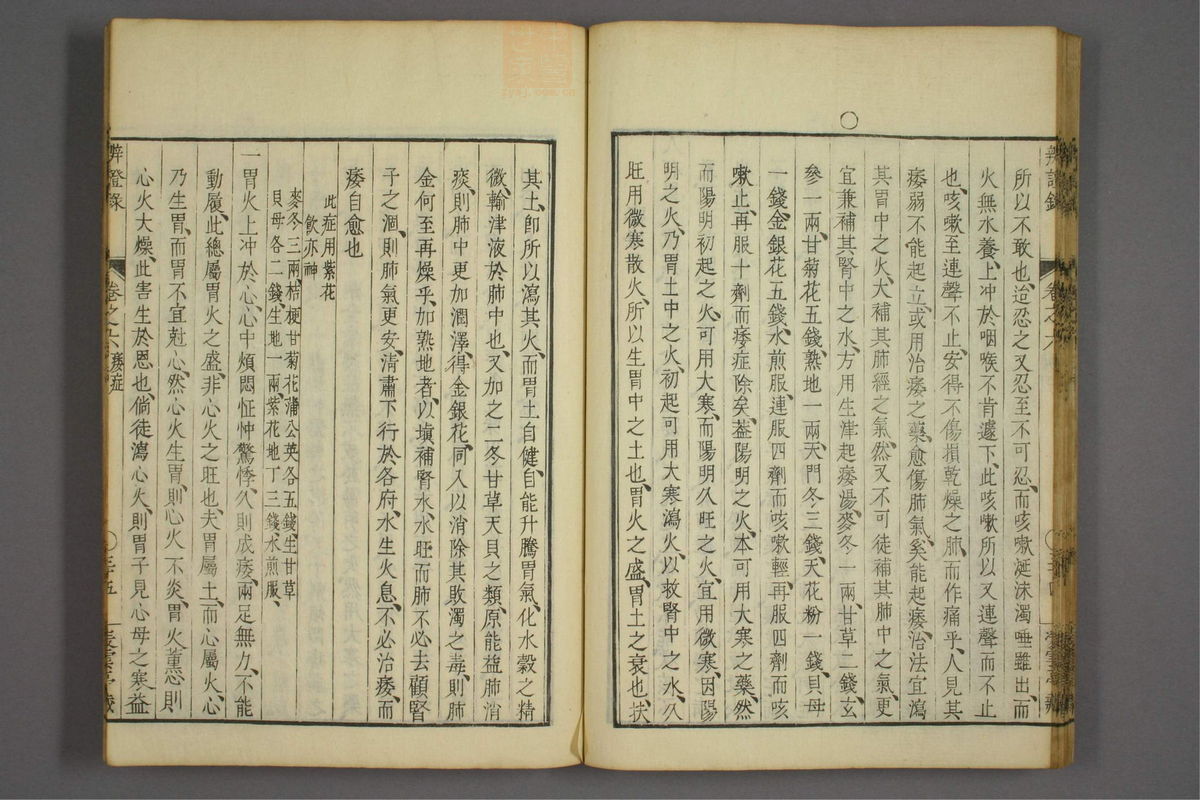 所以不敢也、迨忍之又忍至不可忍、而咳嗽涎沫濁唾雖出、而
火無水養、上冲於咽喉、不肯遽下、此咳嗽所以又連聲而不止
也、咳嗽至連聲不止、安得不傷損乾燥之肺、而作痛乎、人見其
痿弱不能起立、或用治痿之藥、愈傷肺氣、奚能起痿、治法宜瀉
其胃中之火、大補其肺經之氣、然又不可徒補其肺中之氣、更
宜兼補其腎中之水、方用生津起痿湯、麥冬一兩、甘草二錢、玄
參一兩、甘菊花五錢、熟地一兩、天門冬三錢、天花粉一錢、貝母
一錢、金銀花五錢、水煎服、連服四劑而咳嗽輕、再服四劑而咳
嗽止、再服十劑而痿症除矣、葢陽明之火、本可用大寒之藥、然
而陽明初起之火、可用大寒、而陽明久旺之火、宜用微寒、因陽
明之火、乃胃土中之火、初起可用大寒瀉火、以救腎中之水、久
旺用微寒散火、所以生胃中之土也、胃火之盛、胃土之衰也、扶
其土、卽所以瀉其火、而胃土自健、自能升騰胃氣、化水穀之精
微、輸津液於肺中也、又加之二冬甘草天貝之類、原能益肺消
痰、則肺中更加潤澤、得金銀花、同入以消除其敗濁之毒、則肺
金何至再燥乎、加熟地者、以塡補腎水、水旺而肺不必去顧腎
子之涸、則肺氣更安、清肅下行於各府、水生火息、不必治痿、而
痿自愈也
此症用紫花
飲亦神
麥冬三兩、桔梗甘菊花蒲公英各五錢、生甘草
貝母各二錢、生地一兩、紫花地丁三錢、水煎服、
一胃火上冲於心、心中煩悶怔忡驚悸、久則成痿、兩足無力、不能
動履、此總屬胃火之盛、非心火之旺也、夫胃屬土、而心屬火、心
乃生胃、而胃不宜尅心、然心火生胃、則心火不炎、胃火薰心、則
心火大燥、此害生於恩也、倘徒瀉心火、則胃子見心母之寒、益
辨證錄
卷之六
痿症
三十五